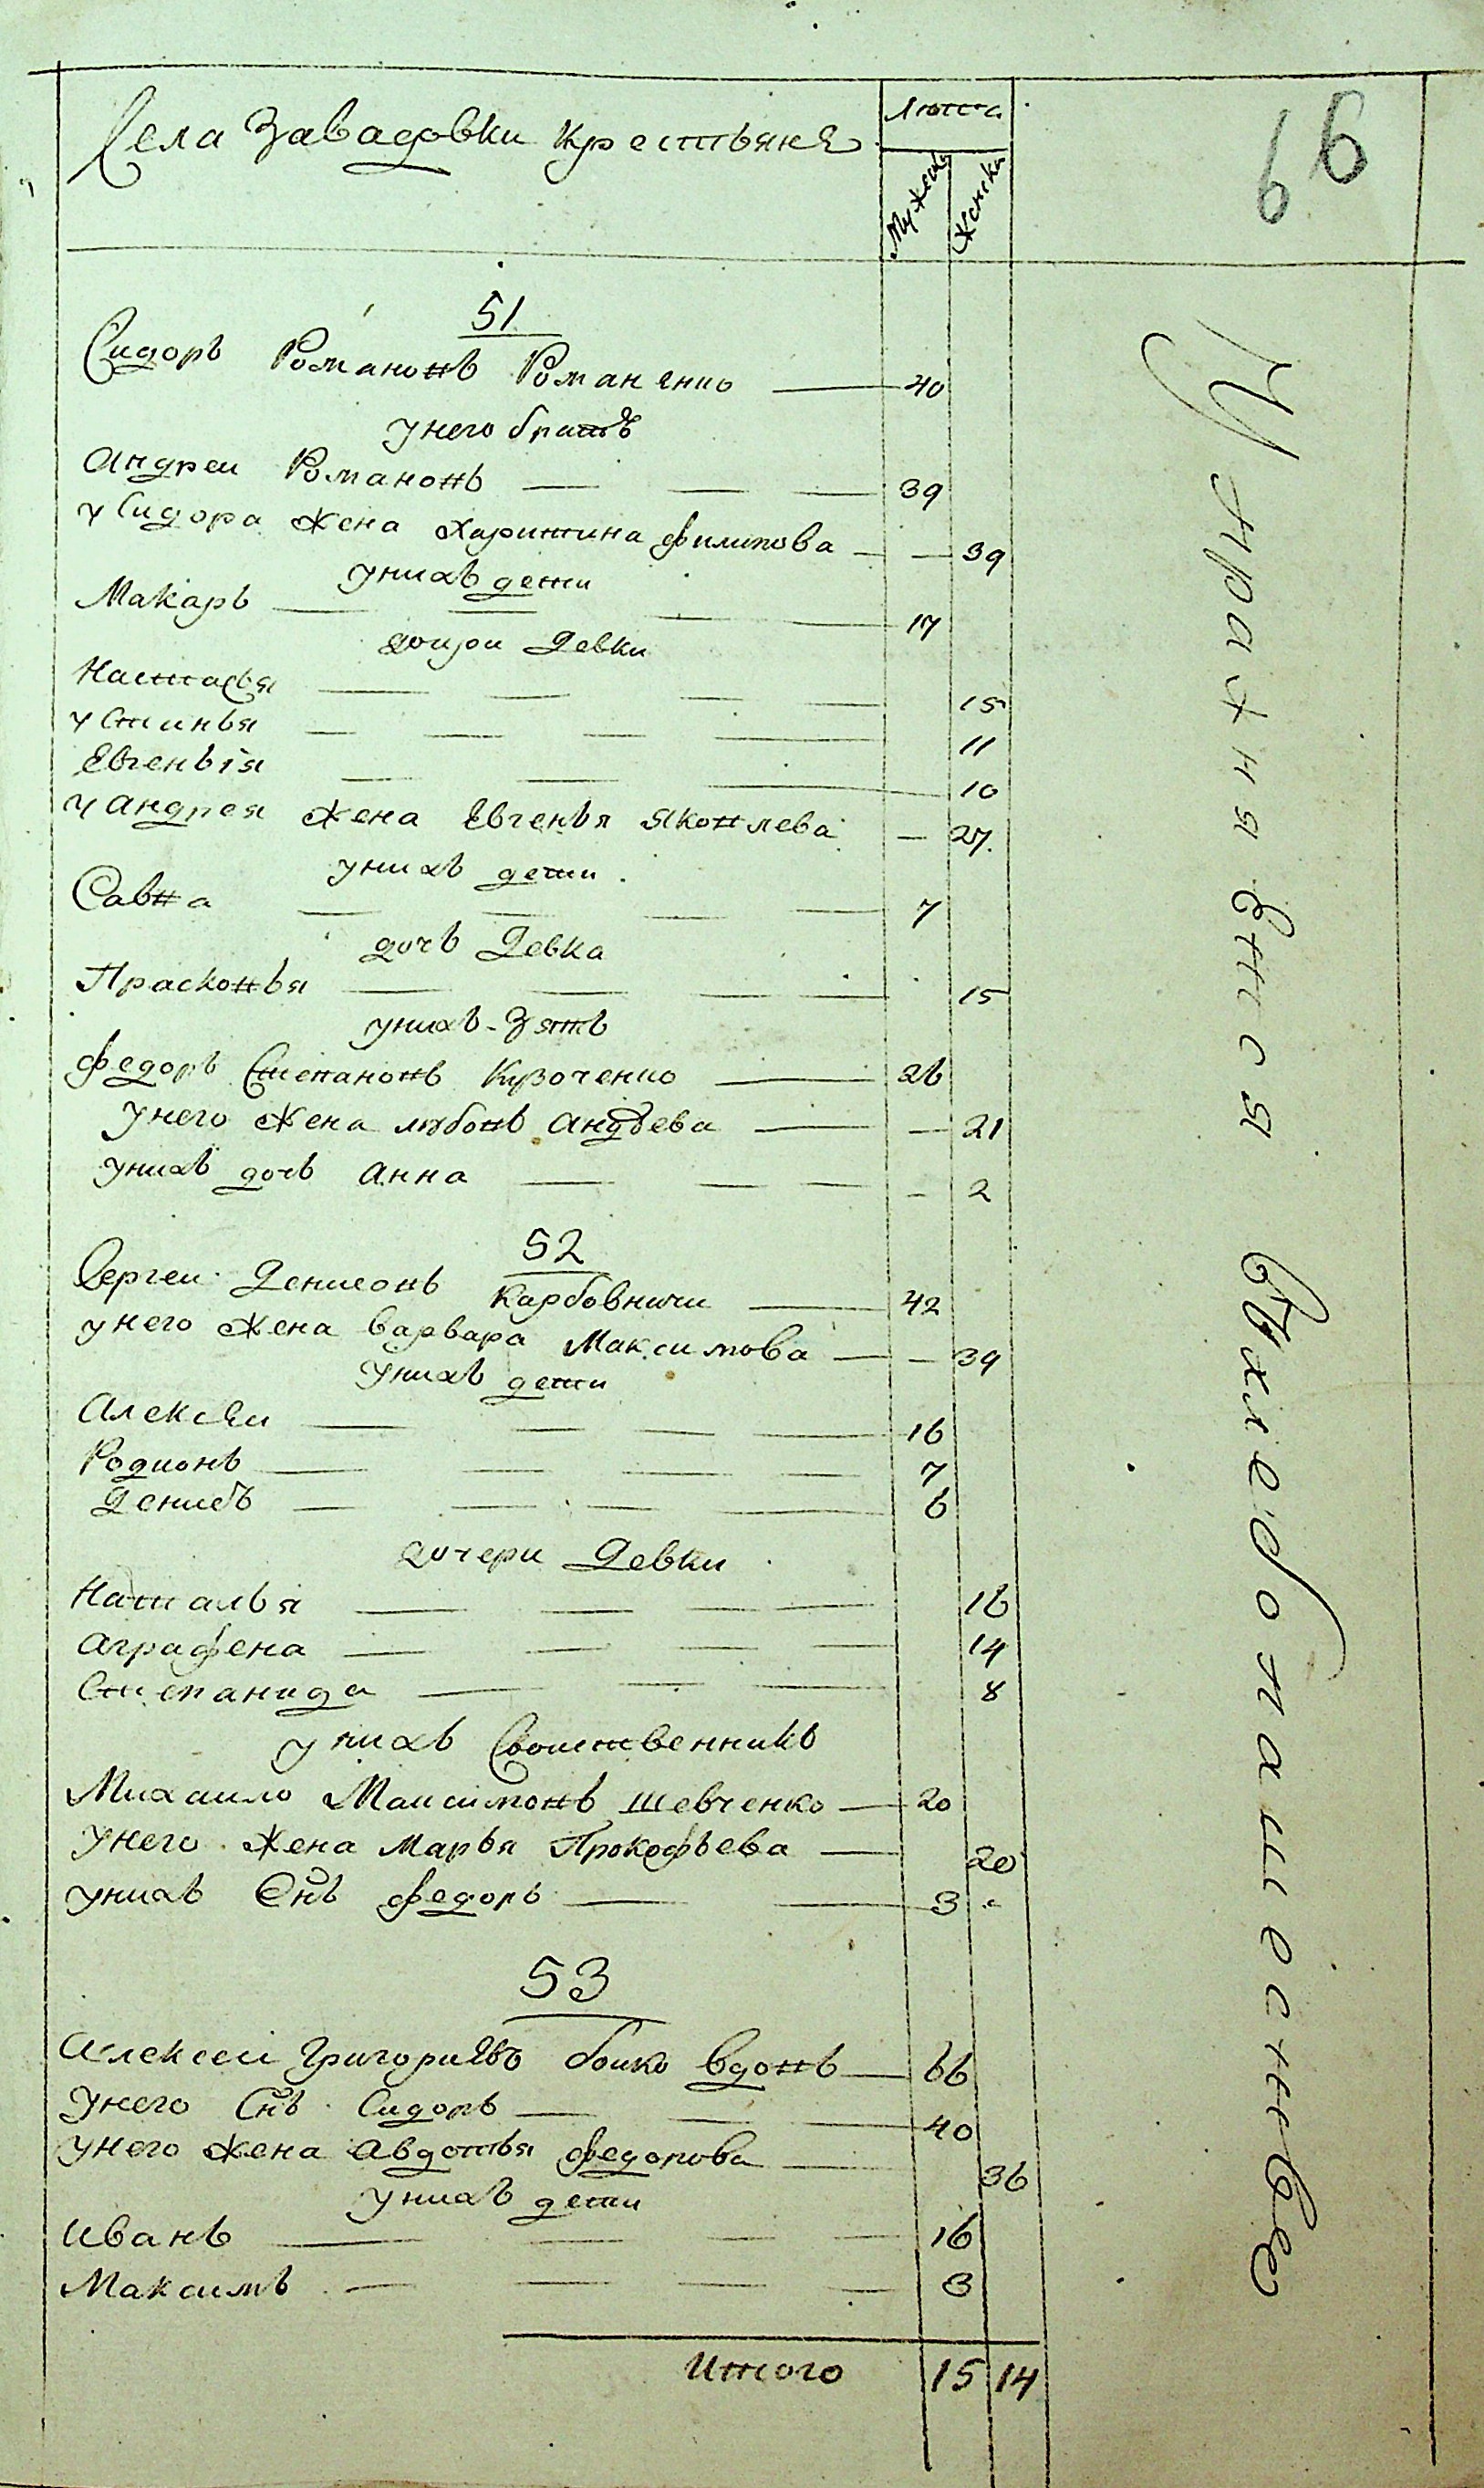 Села Завадовки крестьяне
Лета
Мужеска
Женска
99
51
Сидоръ Романовъ Романенко 40
у него братъ
Андреи Романовъ 39
у Сидора жена Харитина Филипова 39
у нихъ дети
Макаръ 17
дочери девки
Настасья 15
Устинья 11
Евгенья 10
у Андрея жена Евгенья Яковлева 27
у нихъ дети
Савва 7
дочь девка
Прасковья 15
у нихъ зять
Федоръ Степановъ Кузоченко 26
у него жена Любовь Андеева 21
у нихъ дочь Анна 2
52
Сергеи Денисовъ Карбовничи 42
у него жена Варвара Максимова 39
у нихъ дети
Алексеи 16
Родионъ 7
Денисъ 6
дочери девки
Наталья 16
Аграфена 14
Степанида 8
у нихъ Своиственникъ
Михаило Максимовъ Шевченко 20
у него жена Марья Прокофьева 20
у нихъ Снъ Федоръ 3
53
Алексеи Григориевъ Боико вдовъ 66
у него Снъ Сидоръ 40
у него жена Авдотья Федорова 36
у нихъ дети
Иванъ 16
Максимъ 3
Итого 15 14